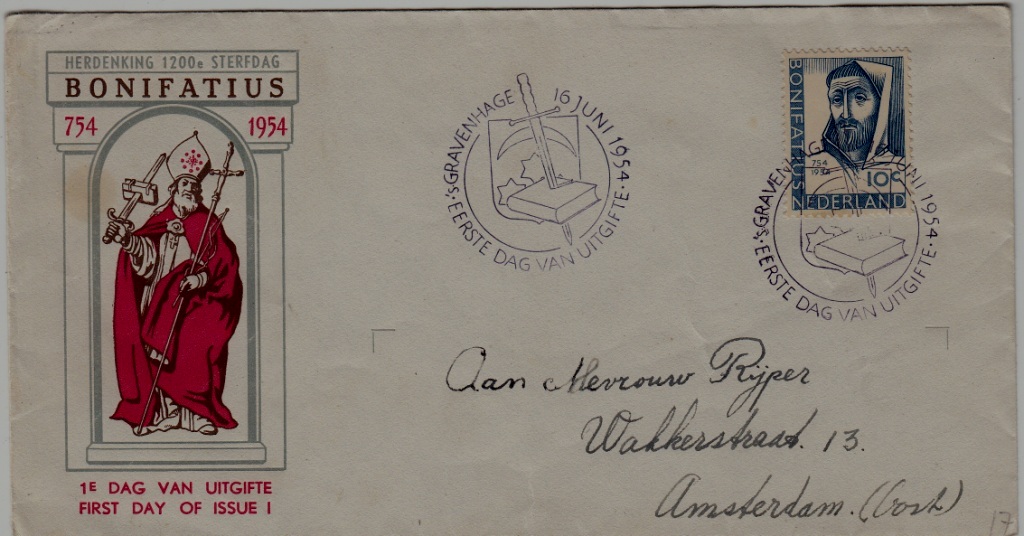 HERDENKING 1200e STERFDAG
BONIFATIUS
754 1954
1E DAG VAN UITGIFTE
FIRST DAY OF ISSUE I
'S GRAVENHAGE 16 JUNI 1954
EERSTE DAG VAN UITGIFTE
BONIFATIUS
754
1954
10c
NEDERLAND
'S GRAVENHAGE JUNI 1954
EERSTE DAG VAN UITGIFTE
Aan Mevrouw Rijper
Wakkerstraat. 13.
Amsterdam. (Oost)
17